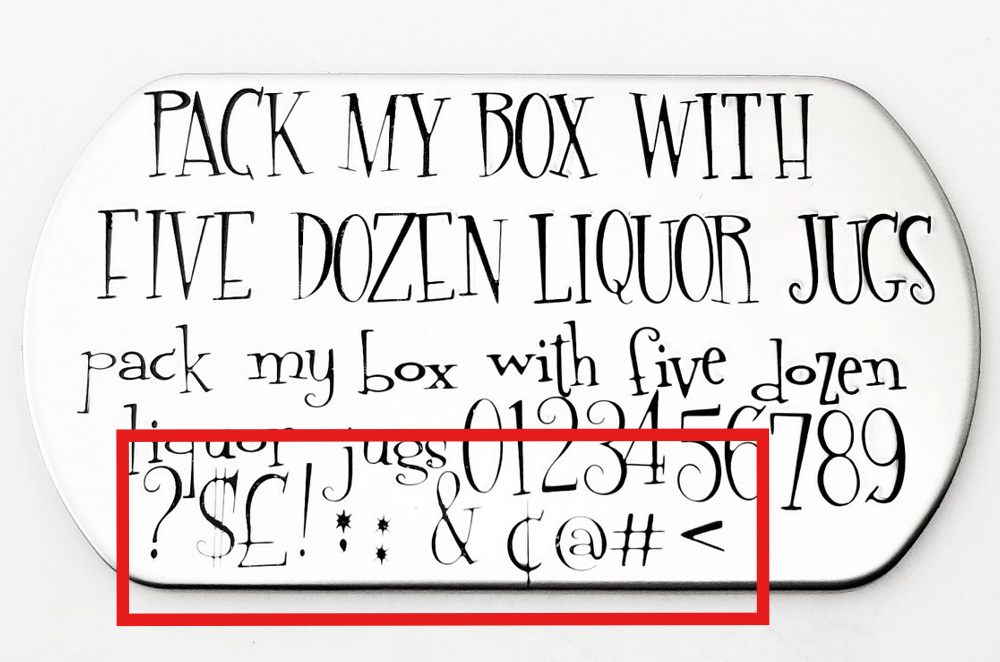 PACK MY BOX WITH
FIVE DOZEN LIQUOR JUGS
pack my box with five dozen
liquor jugs 0123456789
?$£!;: & ¢@#<